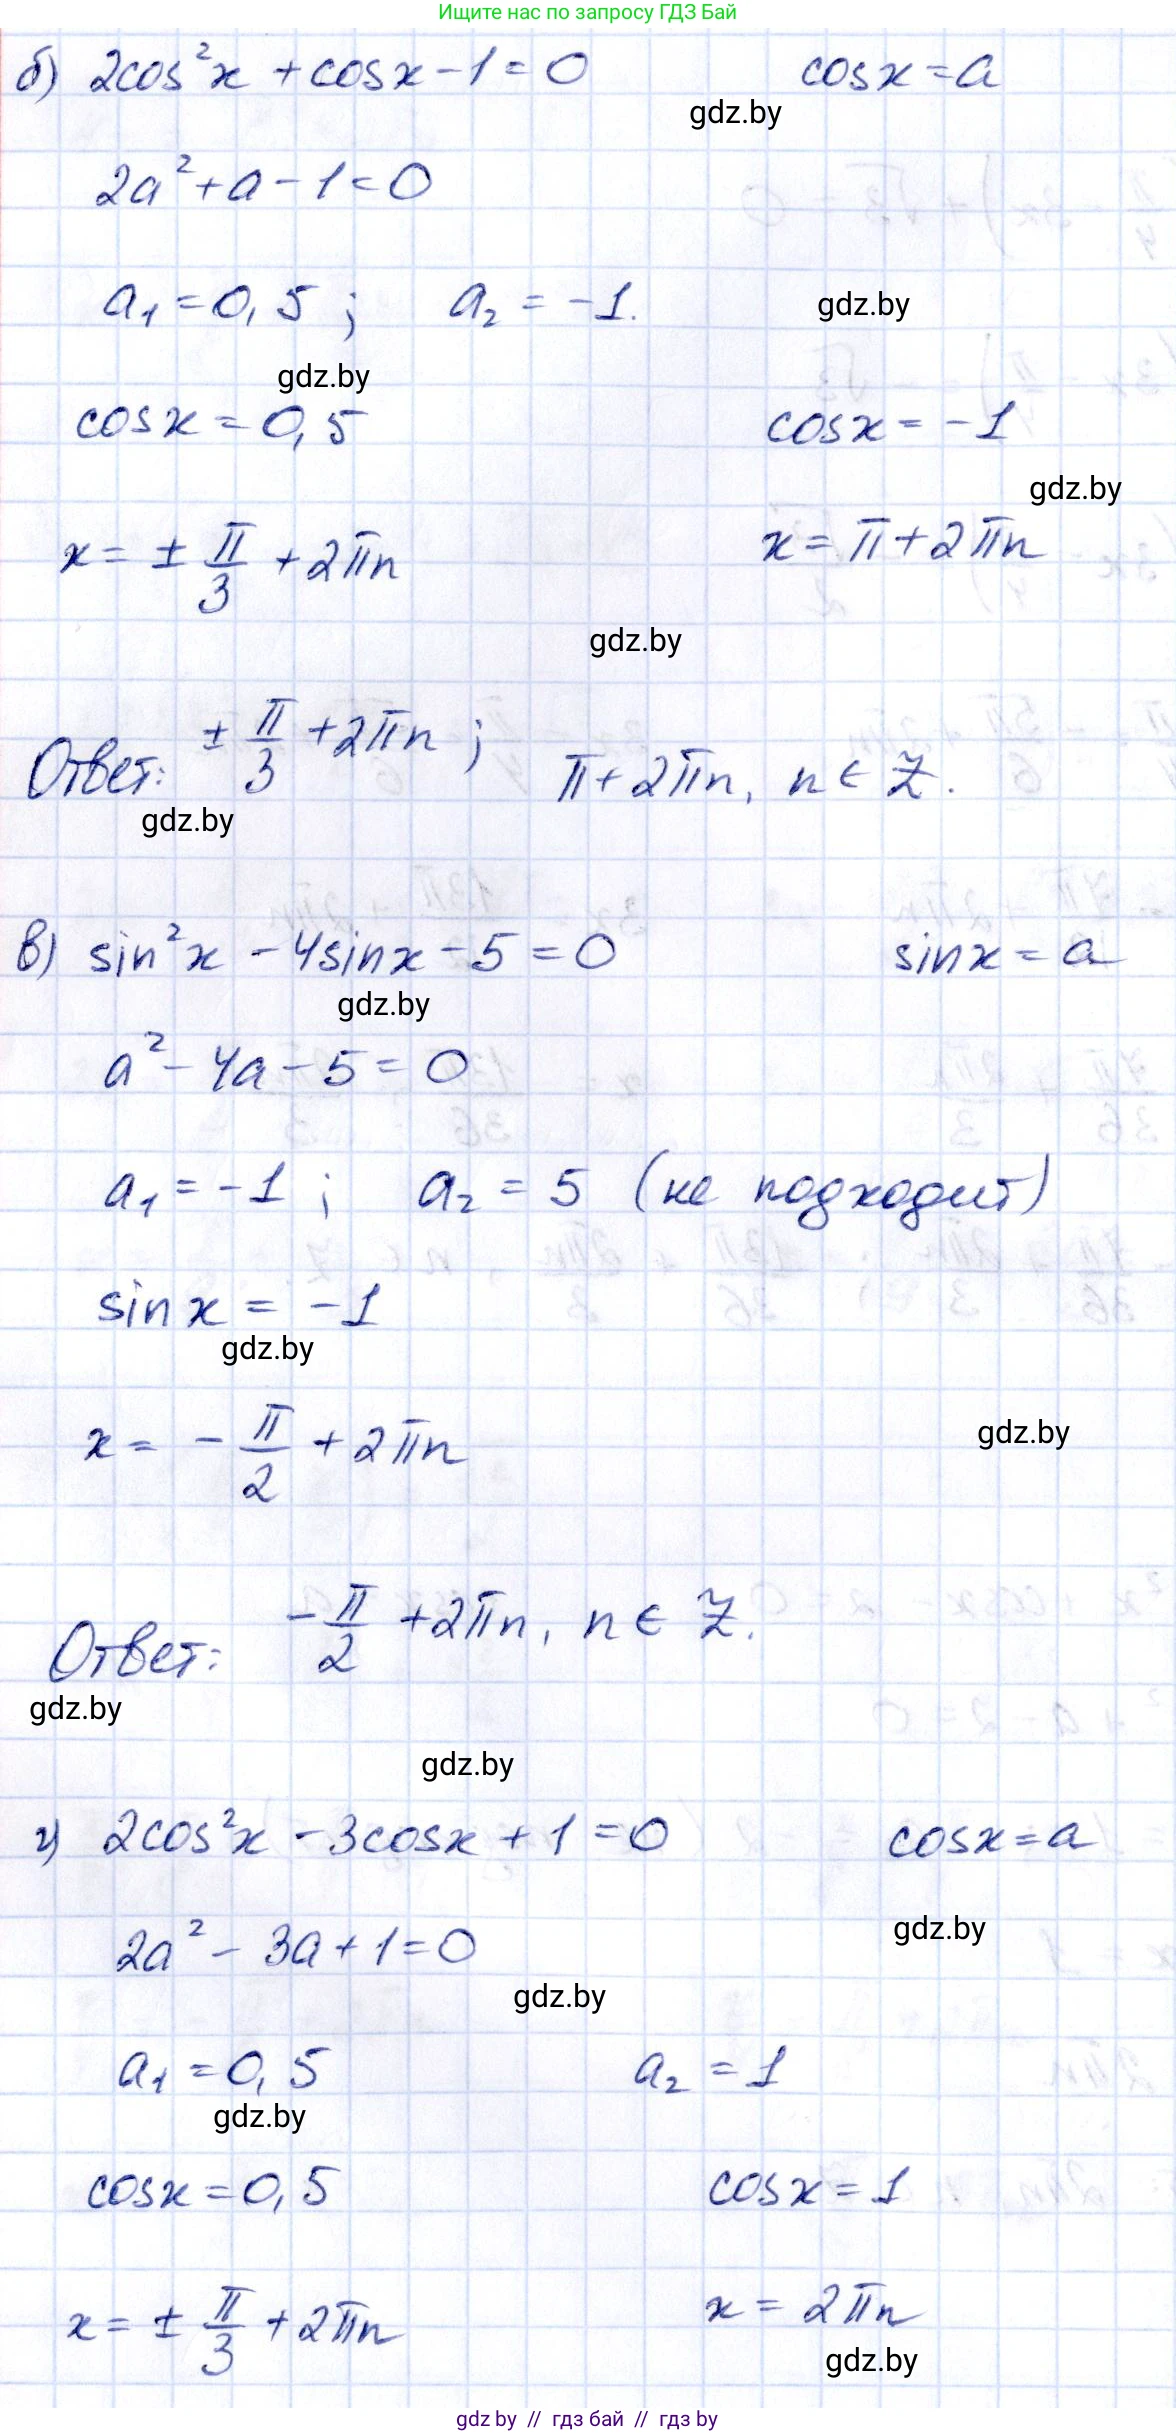 Ищите нас по запросу ГДЗ Бай
б) 2cos²x + cosx - 1 = 0 cosx = a
gdz.by
2a² + a - 1 = 0
a₁ = 0,5 ; a₂ = -1. gdz.by
gdz.by
cosx = 0,5 cosx = -1
gdz.by
x = ± π/3 + 2πn x = π + 2πn
gdz.by
Ответ: ± π/3 + 2πn ; π + 2πn, n ∈ Z.
gdz.by
в) sin²x - 4sinx - 5 = 0 sinx = a
gdz.by
a² - 4a - 5 = 0
a₁ = -1 ; a₂ = 5 (не подходит)
sinx = -1
gdz.by
x = - π/2 + 2πn gdz.by
Ответ: - π/2 + 2πn, n ∈ Z.
gdz.by
gdz.by
г) 2cos²x - 3cosx + 1 = 0 cosx = a
gdz.by
2a² - 3a + 1 = 0
gdz.by
a₁ = 0,5 a₂ = 1
gdz.by
cosx = 0,5 cosx = 1
x = ± π/3 + 2πn x = 2πn
gdz.by
gdz by // гдз бай // гдз by